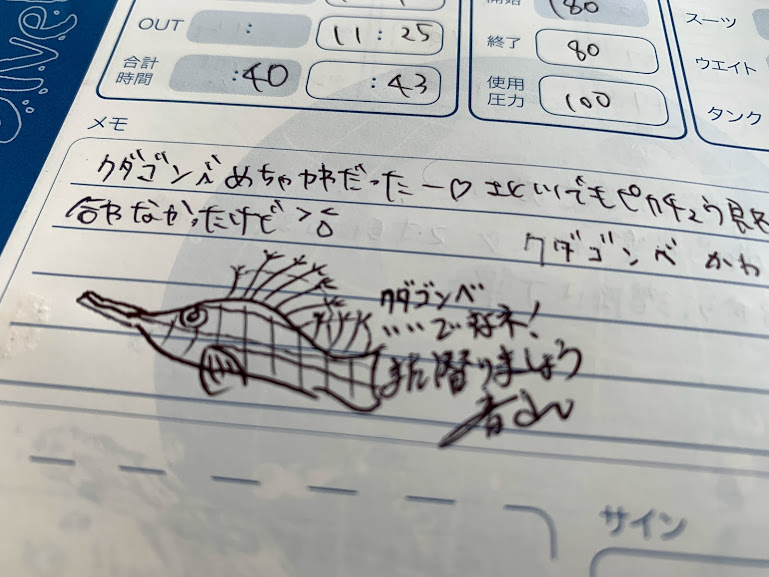 OUT : 11:25
合計時間 :40 :43
開始 180
終了 80
使用圧力 100
スーツ
ウエイト
タンク
メモ
クダゴンベめちゃカワだったー♡ エビいでもピカチュウ
なかったけど
クダゴンベ かわ
クダゴンベ
いいですネ!
また潜りましょう
サイン